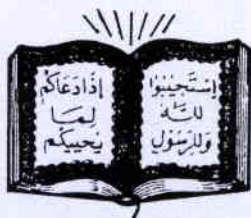 إِسْتَجِيبُوا
لِلَّهِ
وَلِلرَّسُولِ
إِذَا دَعَاكُمْ
لِمَا
يُحْيِيكُمْ